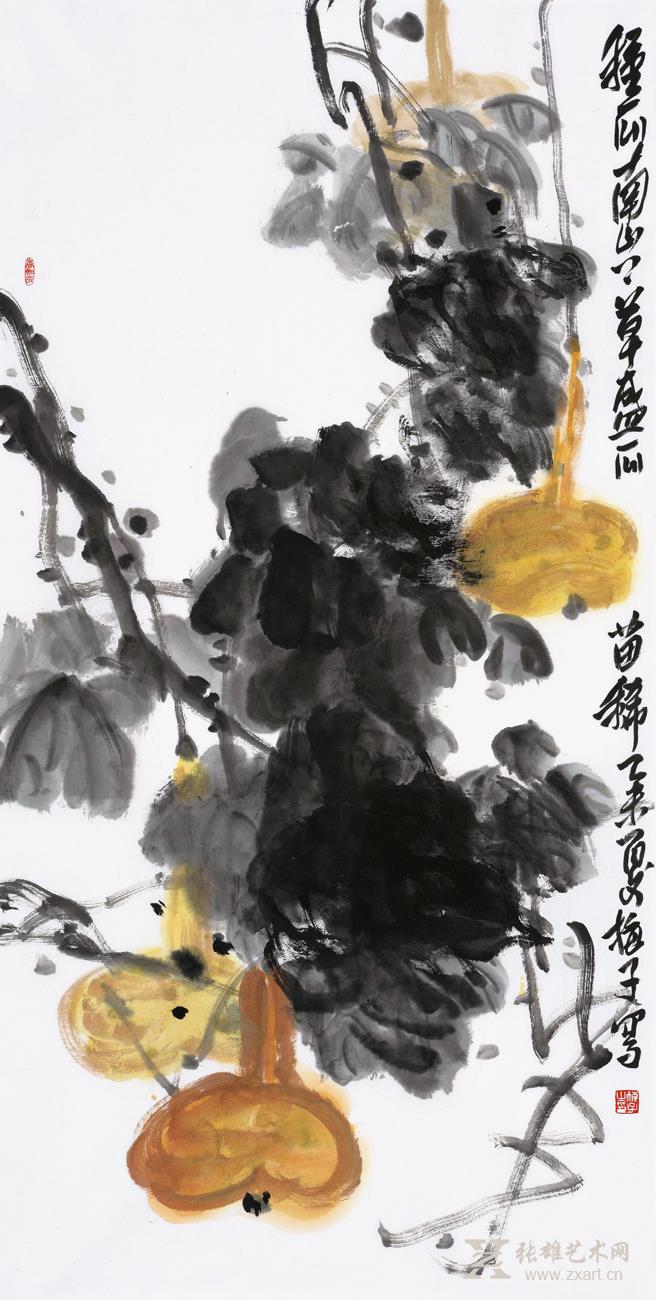 種瓜南山下草盛瓜
苗稀乙未夏梅子寫
张雄艺术网
www.zxart.cn